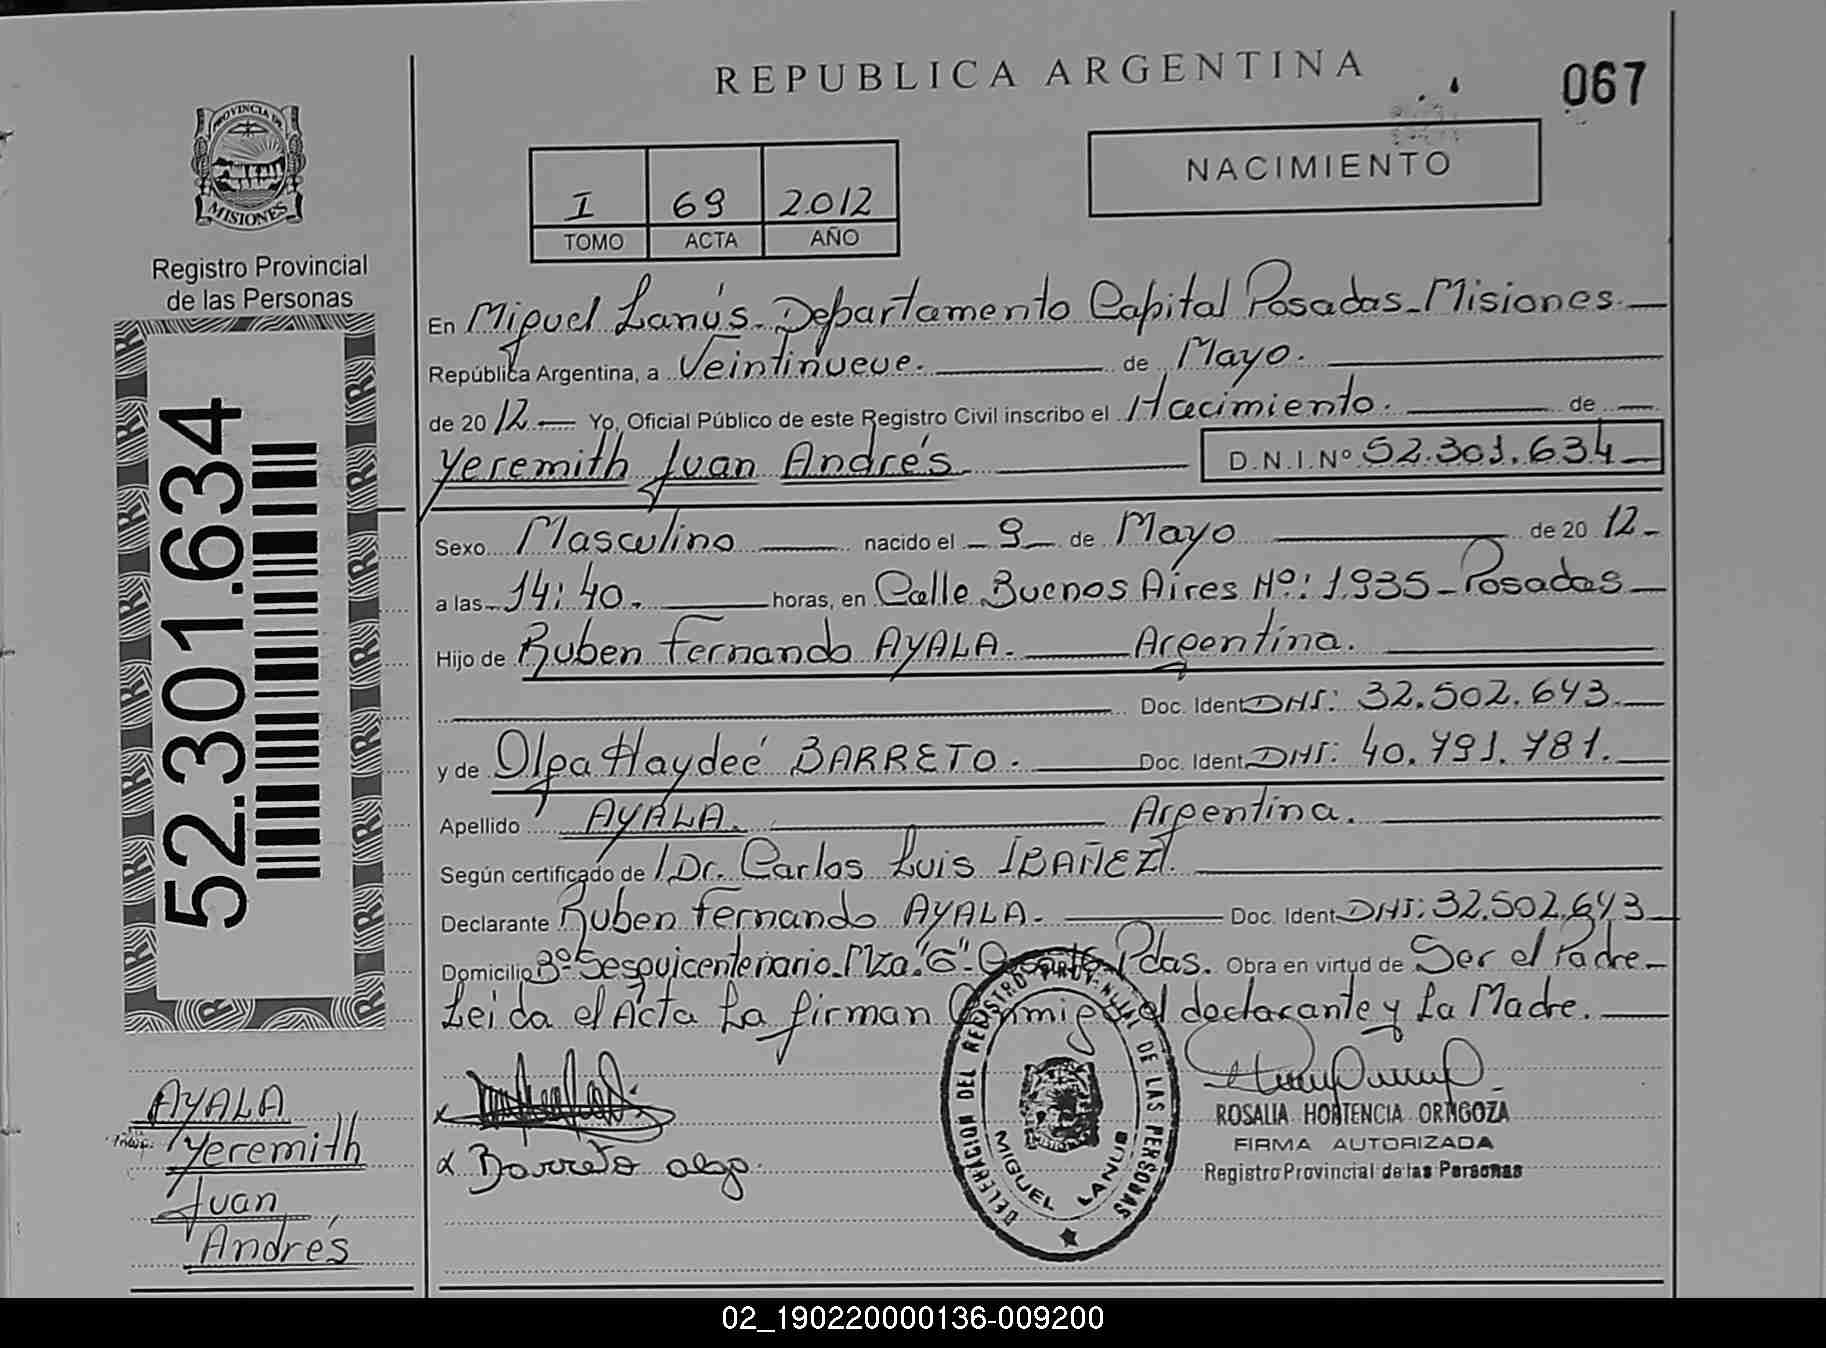 REPUBLICA ARGENTINA
067
PROVINCIA DE
MISIONES
Registro Provincial
de las Personas
52.301.634
I 69 2.012
TOMO ACTA AÑO
NACIMIENTO
En Miguel Lanús. Departamento Capital Posadas-Misiones.
República Argentina, a Veintinueve. de Mayo.
de 2012 Yo, Oficial Público de este Registro Civil inscribo el Nacimiento. de
Yeremith Juan Andrés D.N.I.Nº 52.301.634
Sexo Masculino nacido el 9 de Mayo de 2012-
a las 14:40. horas, en Calle Buenos Aires Nº: 1.935-Posadas
Hijo de Ruben Fernando AYALA. Argentina.
Doc. Ident DNI: 32.502.643.
y de Olga Haydeé BARRETO. Doc. Ident. DNI: 40.791.781.
Apellido AYALA. Argentina.
Según certificado de Dr. Carlos Luis IBAÑEZ.
Declarante Ruben Fernando AYALA. Doc. Ident DNI: 32.502.643
Domicilio Bº Sesquicentenario. Mza. "G" Pdas. Obra en virtud de Ser el Padre-
Leida el Acta La firman Conmigo el declarante y La Madre.
x
x Barreto olga
DELEGACION DEL REGISTRO PROVINCIAL DE LAS PERSONAS
MIGUEL LANUS
ROSALIA HORTENCIA ORTIGOZA
FIRMA AUTORIZADA
Registro Provincial de las Personas
AYALA
Yeremith
Juan
Andrés
02_190220000136-009200